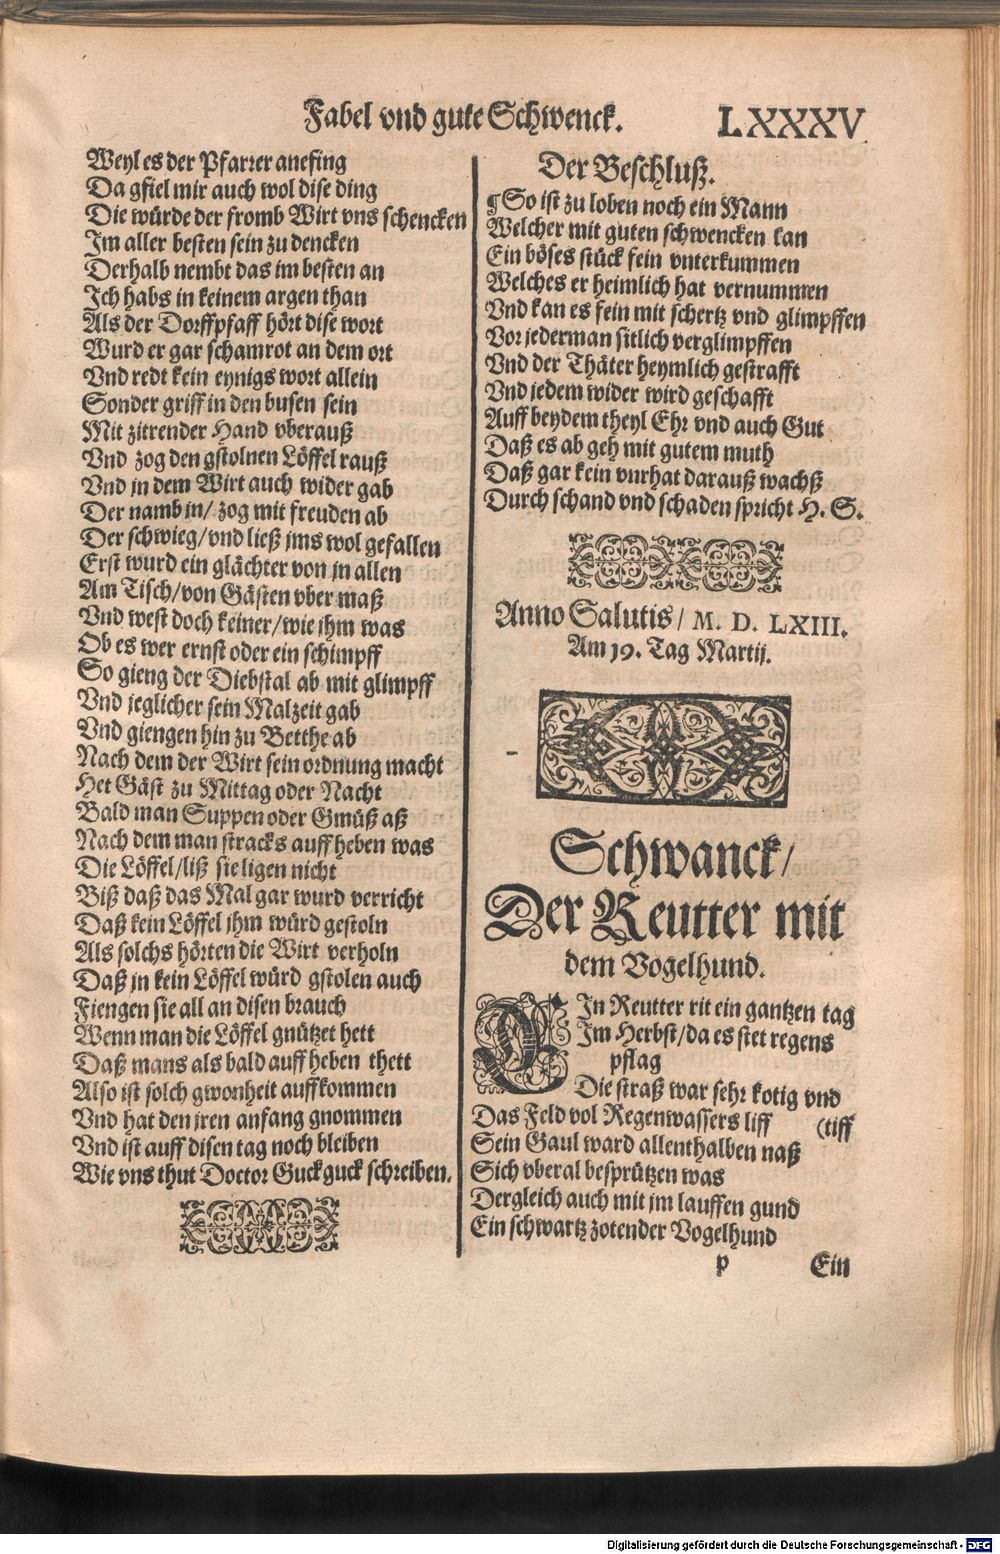 Fabel vnd gute Schwenck. LXXXV
Weyl es der Pfarrer anefing
Da gfiel mir auch wol dise ding
Die würde der fromb Wirt vns schencken
Im aller besten sein zu dencken
Derhalb nembt das im besten an
Ich habs in keinem argen than
Als der Dorffpfaff hört dise wort
Wurd er gar schamrot an dem ort
Vnd redt kein eynigs wort allein
Sonder griff in den busen sein
Mit zitrender Hand vberauß
Vnd zog den gstolnen Löffel rauß
Vnd jn dem Wirt auch wider gab
Der namb jn/ zog mit freuden ab
Der schwieg/vnd ließ jms wol gefallen
Erst wurd ein glächter von jn allen
Am Tisch/von Gästen vber maß
Vnd west doch keiner/wie jhm was
Ob es wer ernst oder ein schimpff
So gieng der Diebstal ab mit glimpff
Vnd jeglicher sein Malzeit gab
Vnd giengen hin zu Betthe ab
Nach dem der Wirt sein ordnung macht
Het Gäst zu Mittag oder Nacht
Bald man Suppen oder Gmüß aß
Nach dem man stracks auff heben was
Die Löffel/liß sie ligen nicht
Biß daß das Mal gar wurd verricht
Daß kein Löffel jhm würd gestoln
Als solchs hörten die Wirt verholn
Daß jn kein Löffel würd gstolen auch
Fiengen sie all an disen brauch
Wenn man die Löffel gnützet hett
Daß mans als bald auff heben thett
Also ist solch gwonheit auffkommen
Vnd hat den jren anfang gnommen
Vnd ist auff disen tag noch bleiben
Wie vns thut Doctor Guckguck schreiben.
Der Beschluß.
¶ So ist zu loben noch ein Mann
Welcher mit guten schwencken kan
Ein böses stück fein vnterkummen
Welches er heimlich hat vernummen
Vnd kan es fein mit schertz vnd glimpffen
Vor jederman sitlich verglimpffen
Vnd der Thäter heymlich gestrafft
Vnd jedem wider wird geschafft
Auff beydem theyl Ehr vnd auch Gut
Daß es ab geh mit gutem muth
Daß gar kein vnrhat darauß wachß
Durch schand vnd schaden spricht H. S.
Anno Salutis/ M. D. LXIII.
Am 19. Tag Martij.
Schwanck/
Der Reutter mit
dem Vogelhund.
EIn Reutter rit ein gantzen tag
Im Herbst/da es stet regens
pflag
Die straß war sehr kotig vnd
Das Feld vol Regenwassers liff (tiff
Sein Gaul ward allenthalben naß
Sich vberal besprützen was
Dergleich auch mit jm lauffen gund
Ein schwartz zotender Vogelhund
p Ein
Digitalisierung gefördert durch die Deutsche Forschungsgemeinschaft - DFG